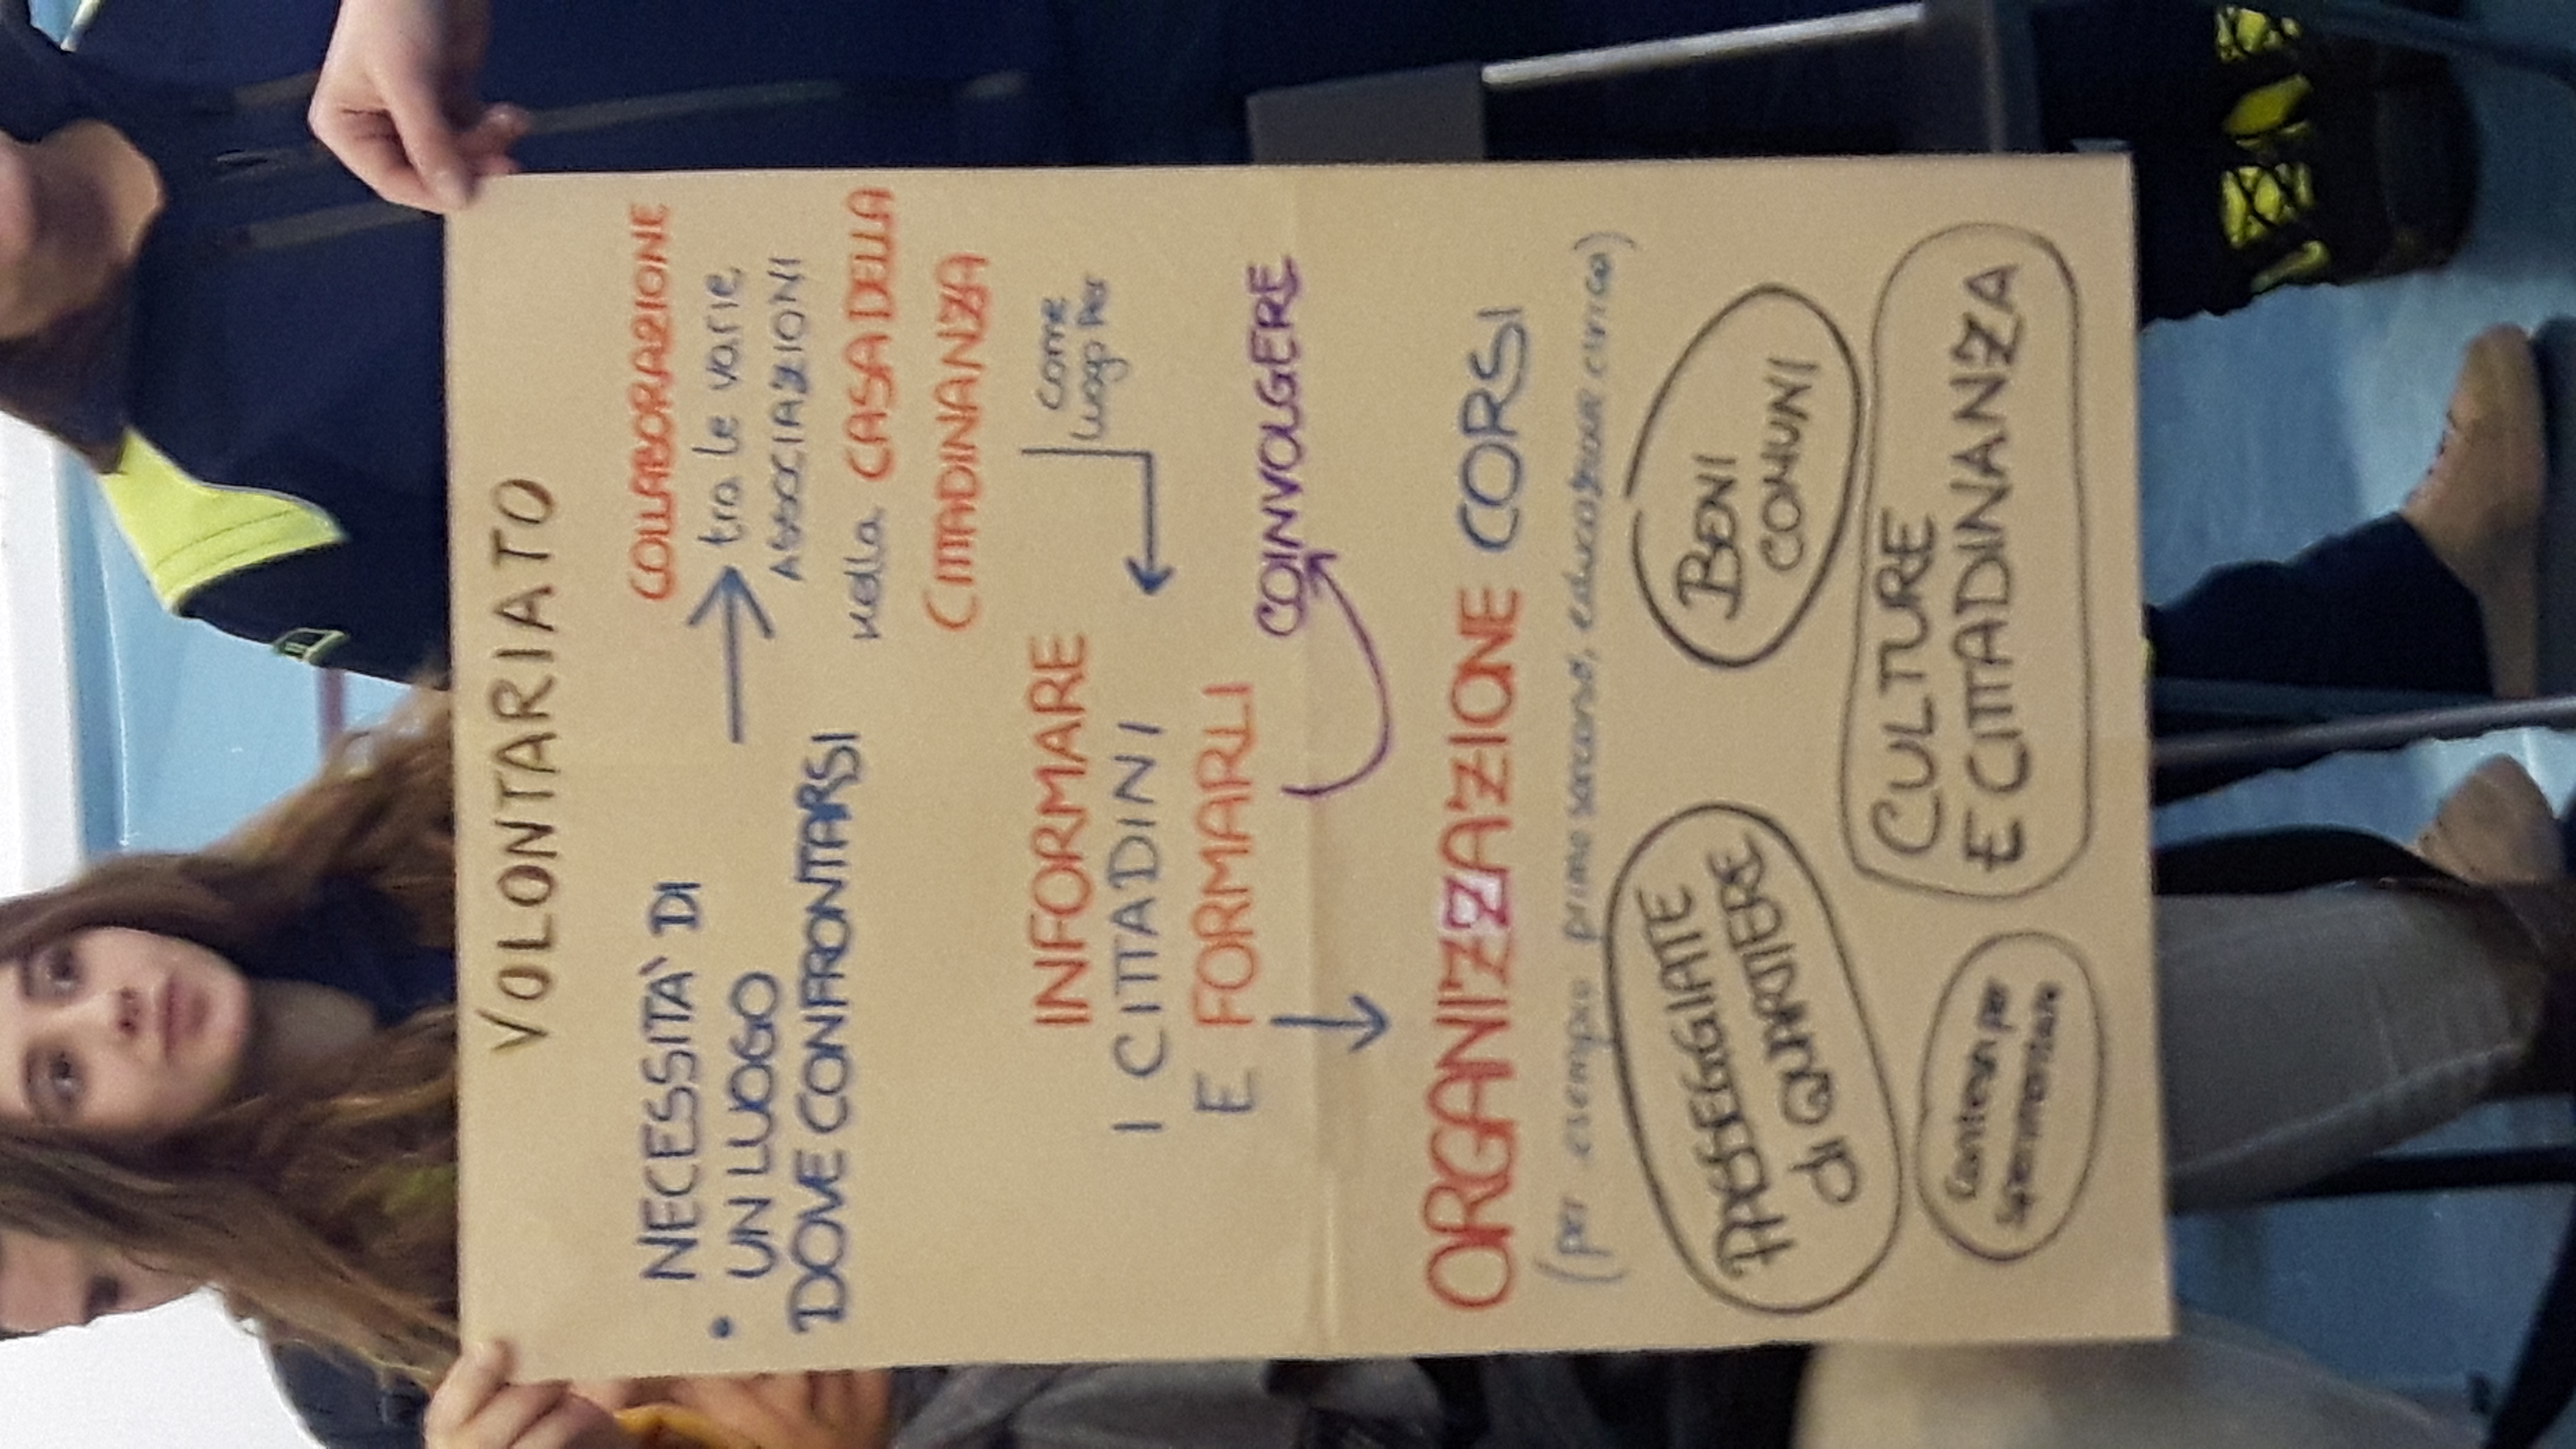 VOLONTARIATO
• NECESSITA' DI
UN LUOGO
DOVE CONFRONTARSI
COLLABORAZIONE
tra le varie
ASSOCIAZIONI
nella CASA DELLA
CITTADINANZA
come
luogo per
INFORMARE
I CITTADINI
E FORMARLI
COINVOLGERE
ORGANIZZAZIONE CORSI
(per esempio primo soccorso, educazione civica)
PASSEGGIATE
di QUARTIERE
BENI
COMUNI
CULTURE
E CITTADINANZA
per
sperimentare